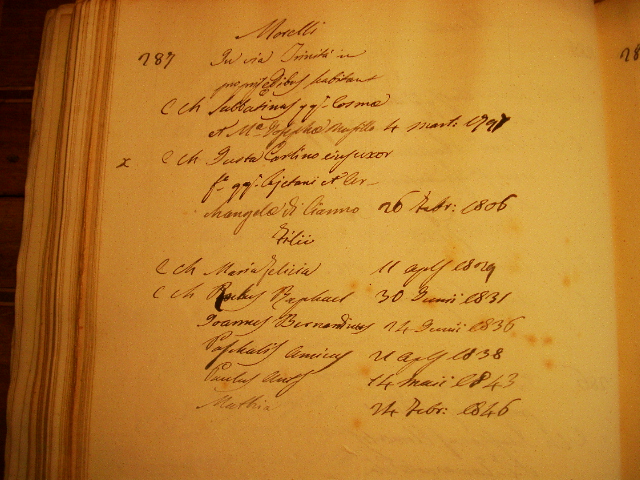 Morelli
287 In via Trinità in
propriis Edibus habitant
C Ch Sabbatinus qq.m Cosma
et M.a Josepha 4 mart: 1797
x C Ch Justa Carlino ejus uxor
f.a qq.m Cajetani et Ar-
changela Di Cianno 26 Febr: 1806
Filii
C Ch Maria Felicia 11 apls 1829
C Ch Raphael 30 Junii 1831
Joannes Bernardinus 24 Junii 1836
Paschalis Amicus 21 apls 1838
Paulus 14 maii 1843
Mathia 24 Febr: 1846
28